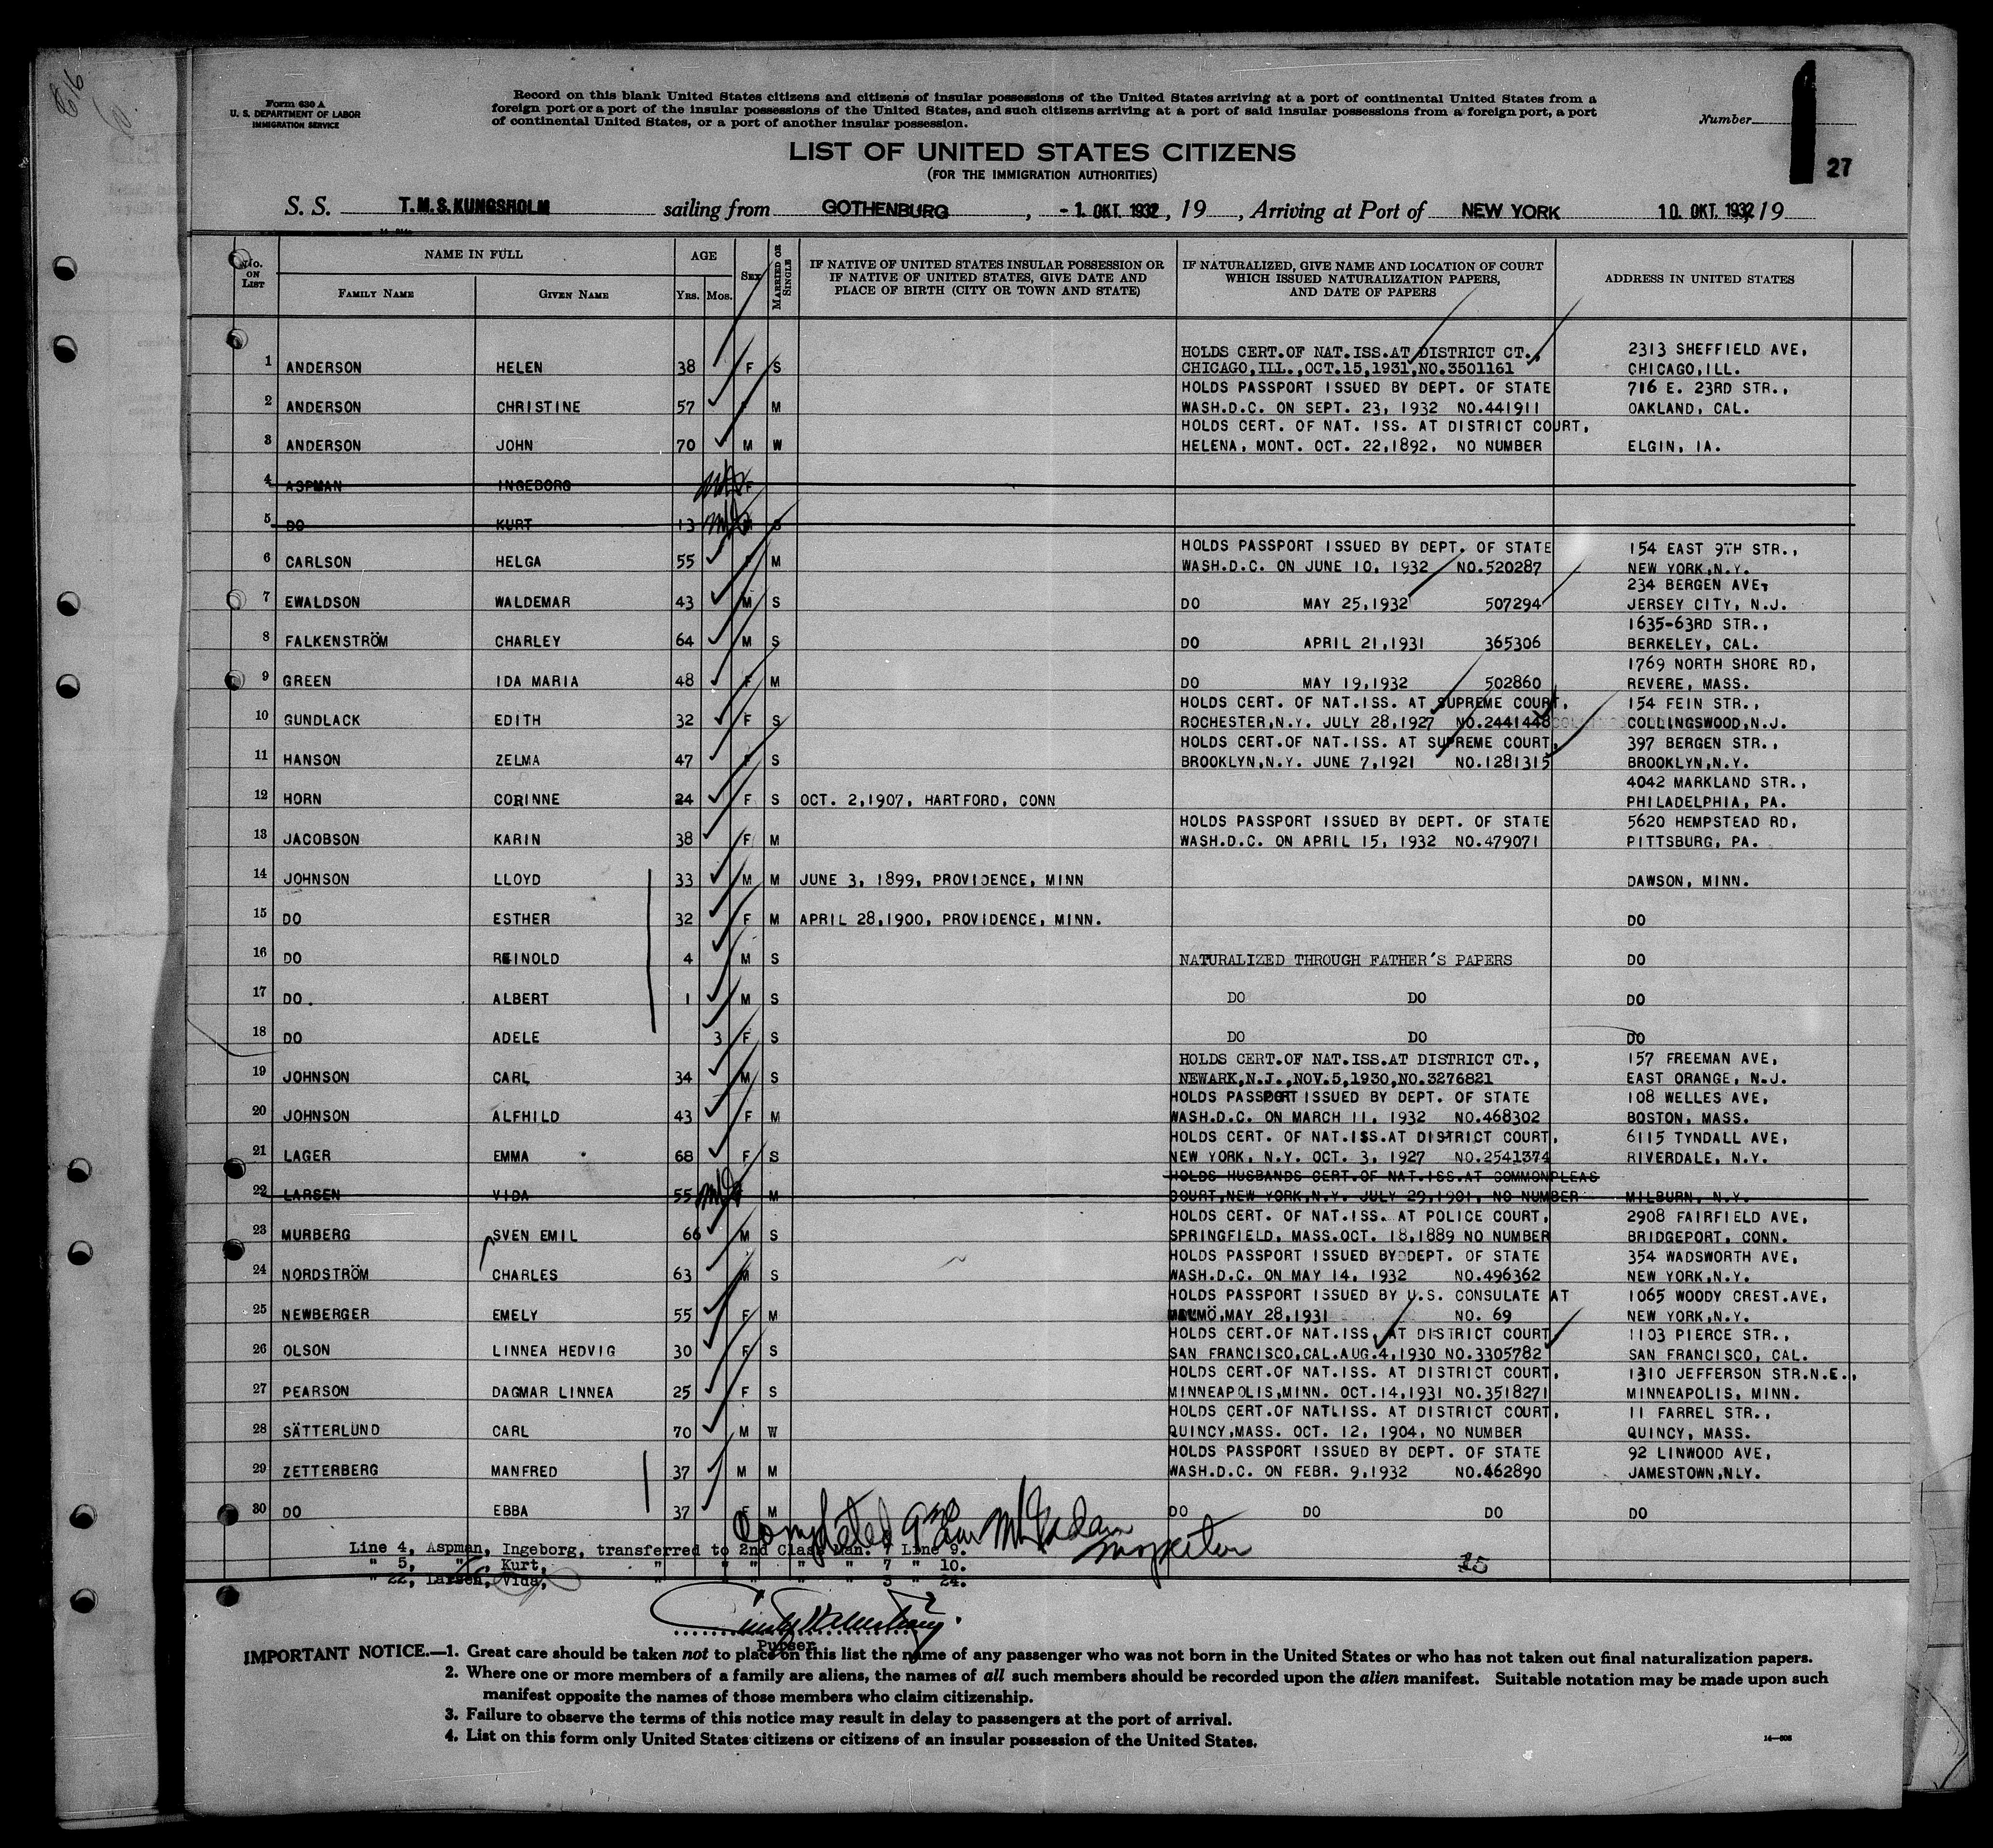 Form 630 A
U. S. DEPARTMENT OF LABOR
IMMIGRATION SERVICE
Record on this blank United States citizens and citizens of insular possessions of the United States arriving at a port of continental United States from a
foreign port or a port of the insular possessions of the United States, and such citizens arriving at a port of said insular possessions from a foreign port, a port
of continental United States, or a port of another insular possession.
Number
27
LIST OF UNITED STATES CITIZENS
(FOR THE IMMIGRATION AUTHORITIES)
S. S. T.M.S. KUNGSHOLM sailing from GOTHENBURG, -1. OKT. 1932, 19, Arriving at Port of NEW YORK 10. OKT. 1932, 19
No. ON LIST
NAME IN FULL
FAMILY NAME GIVEN NAME
AGE
YRS. MOS.
SEX
MARRIED OR SINGLE
IF NATIVE OF UNITED STATES INSULAR POSSESSION OR
IF NATIVE OF UNITED STATES, GIVE DATE AND
PLACE OF BIRTH (CITY OR TOWN AND STATE)
IF NATURALIZED, GIVE NAME AND LOCATION OF COURT
WHICH ISSUED NATURALIZATION PAPERS,
AND DATE OF PAPERS
ADDRESS IN UNITED STATES
HOLDS CERT.OF NAT.ISS.AT DISTRICT CT., 2313 SHEFFIELD AVE,
1 ANDERSON HELEN 38 F S CHICAGO,ILL.,OCT.15,1931,NO.3501161 CHICAGO,ILL.
HOLDS PASSPORT ISSUED BY DEPT. OF STATE 716 E. 23RD STR.,
2 ANDERSON CHRISTINE 57 F M WASH.D.C. ON SEPT. 23, 1932 NO.441911 OAKLAND, CAL.
HOLDS CERT. OF NAT. ISS. AT DISTRICT COURT,
3 ANDERSON JOHN 70 M W HELENA, MONT. OCT. 22,1892, NO NUMBER ELGIN, IA.
4 ASPMAN INGEBORG F
5 DO KURT 13 M S
HOLDS PASSPORT ISSUED BY DEPT. OF STATE 154 EAST 9TH STR.,
6 CARLSON HELGA 55 F M WASH.D.C. ON JUNE 10, 1932 NO.520287 NEW YORK,N.Y.
234 BERGEN AVE,
7 EWALDSON WALDEMAR 43 M S DO MAY 25,1932 507294 JERSEY CITY, N.J.
1635-63RD STR.,
8 FALKENSTRÖM CHARLEY 64 M S DO APRIL 21,1931 365306 BERKELEY, CAL.
1769 NORTH SHORE RD,
9 GREEN IDA MARIA 48 F M DO MAY 19,1932 502860 REVERE, MASS.
HOLDS CERT. OF NAT.ISS. AT SUPREME COURT, 154 FEIN STR.,
10 GUNDLACK EDITH 32 F S ROCHESTER,N.Y. JULY 28,1927 NO.2441448 COLLINGSWOOD,N.J.
HOLDS CERT.OF NAT.ISS. AT SUPREME COURT, 397 BERGEN STR.,
11 HANSON ZELMA 47 F S BROOKLYN,N.Y. JUNE 7,1921 NO.1281315 BROOKLYN,N.Y.
4042 MARKLAND STR.,
12 HORN CORINNE 24 F S OCT. 2,1907, HARTFORD, CONN PHILADELPHIA, PA.
HOLDS PASSPORT ISSUED BY DEPT. OF STATE 5620 HEMPSTEAD RD,
13 JACOBSON KARIN 38 F M WASH.D.C. ON APRIL 15, 1932 NO.479071 PITTSBURG, PA.
14 JOHNSON LLOYD 33 M M JUNE 3, 1899, PROVIDENCE, MINN DAWSON, MINN.
15 DO ESTHER 32 F M APRIL 28,1900, PROVIDENCE, MINN. DO
16 DO REINOLD 4 M S NATURALIZED THROUGH FATHER'S PAPERS DO
17 DO. ALBERT 1 M S DO DO DO
18 DO ADELE 3 F S DO DO DO
HOLDS CERT.OF NAT.ISS.AT DISTRICT CT., 157 FREEMAN AVE,
19 JOHNSON CARL 34 M S NEWARK,N.J.,NOV.5,1930,NO.3276821 EAST ORANGE, N.J.
HOLDS PASSPORT ISSUED BY DEPT. OF STATE 108 WELLES AVE,
20 JOHNSON ALFHILD 43 F M WASH.D.C. ON MARCH 11, 1932 NO.468302 BOSTON, MASS.
HOLDS CERT. OF NAT.ISS.AT DISTRICT COURT, 6115 TYNDALL AVE,
21 LAGER EMMA 68 F S NEW YORK, N.Y. OCT. 3, 1927 NO.2541374 RIVERDALE, N.Y.
HOLDS HUSBANDS CERT.OF NAT.ISS.AT COMMONPLEAS
22 LARSEN VIDA 55 M COURT,NEW YORK,N.Y. JULY 29,1901, NO NUMBER MILBURN, N.Y.
HOLDS CERT. OF NAT.ISS. AT POLICE COURT, 2908 FAIRFIELD AVE,
23 MURBERG SVEN EMIL 66 M S SPRINGFIELD, MASS.OCT. 18,1889 NO NUMBER BRIDGEPORT, CONN.
HOLDS PASSPORT ISSUED BY DEPT. OF STATE 354 WADSWORTH AVE,
24 NORDSTRÖM CHARLES 63 M S WASH.D.C. ON MAY 14, 1932 NO.496362 NEW YORK,N.Y.
HOLDS PASSPORT ISSUED BY U.S. CONSULATE AT 1065 WOODY CREST.AVE,
25 NEWBERGER EMELY 55 F M MALMÖ,MAY 28,1931 NO. 69 NEW YORK,N.Y.
HOLDS CERT.OF NAT.ISS. AT DISTRICT COURT, 1103 PIERCE STR.,
26 OLSON LINNEA HEDVIG 30 F S SAN FRANCISCO,CAL.AUG.4,1930 NO.3305782 SAN FRANCISCO, CAL.
HOLDS CERT.OF NAT.ISS. AT DISTRICT COURT, 1310 JEFFERSON STR.N.E.,
27 PEARSON DAGMAR LINNEA 25 F S MINNEAPOLIS,MINN. OCT.14,1931 NO.3518271 MINNEAPOLIS, MINN.
HOLDS CERT.OF NATLISS. AT DISTRICT COURT, 11 FARREL STR.,
28 SÄTTERLUND CARL 70 M W QUINCY,MASS. OCT. 12, 1904, NO NUMBER QUINCY, MASS.
HOLDS PASSPORT ISSUED BY DEPT. OF STATE 92 LINWOOD AVE,
29 ZETTERBERG MANFRED 37 M M WASH.D.C. ON FEBR. 9,1932 NO.462890 JAMESTOWN,NLY.
30 DO EBBA 37 F M DO DO DO DO
Completed
Inspector
Line 4, Aspman, Ingeborg, transferred to 2nd Class Man. 7 Line 9.
" 5, " Kurt, " " " " 7 " 10.
" 22, Larsen, Vida, " " " " 3 " 24.
Purser
IMPORTANT NOTICE.—1. Great care should be taken not to place on this list the name of any passenger who was not born in the United States or who has not taken out final naturalization papers.
2. Where one or more members of a family are aliens, the names of all such members should be recorded upon the alien manifest. Suitable notation may be made upon such
manifest opposite the names of those members who claim citizenship.
3. Failure to observe the terms of this notice may result in delay to passengers at the port of arrival.
4. List on this form only United States citizens or citizens of an insular possession of the United States.